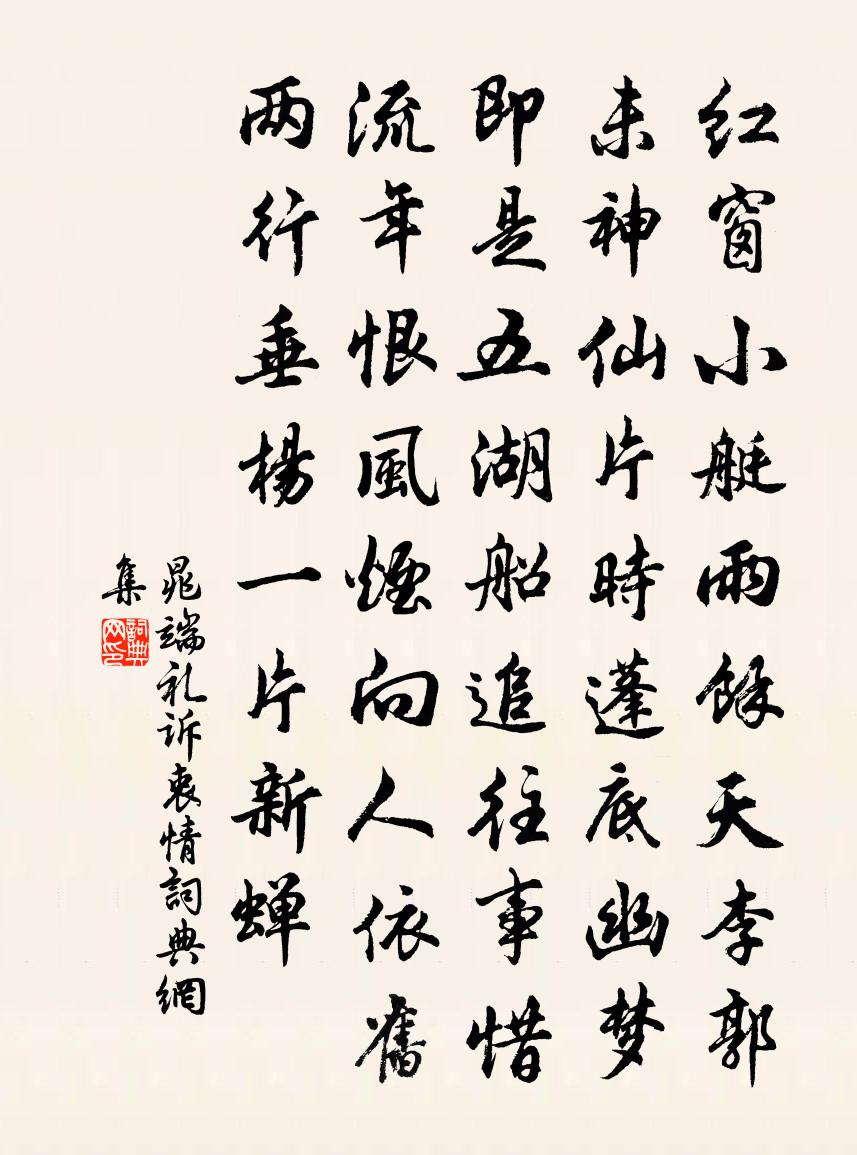 红窗小艇雨餘天李郭
未神仙片時蓬底幽梦
即是五湖船追往事惜
流年恨風煙向人依舊
两行垂楊一片新蝉
晁端礼诉衷情詞典網
集
詞典网印